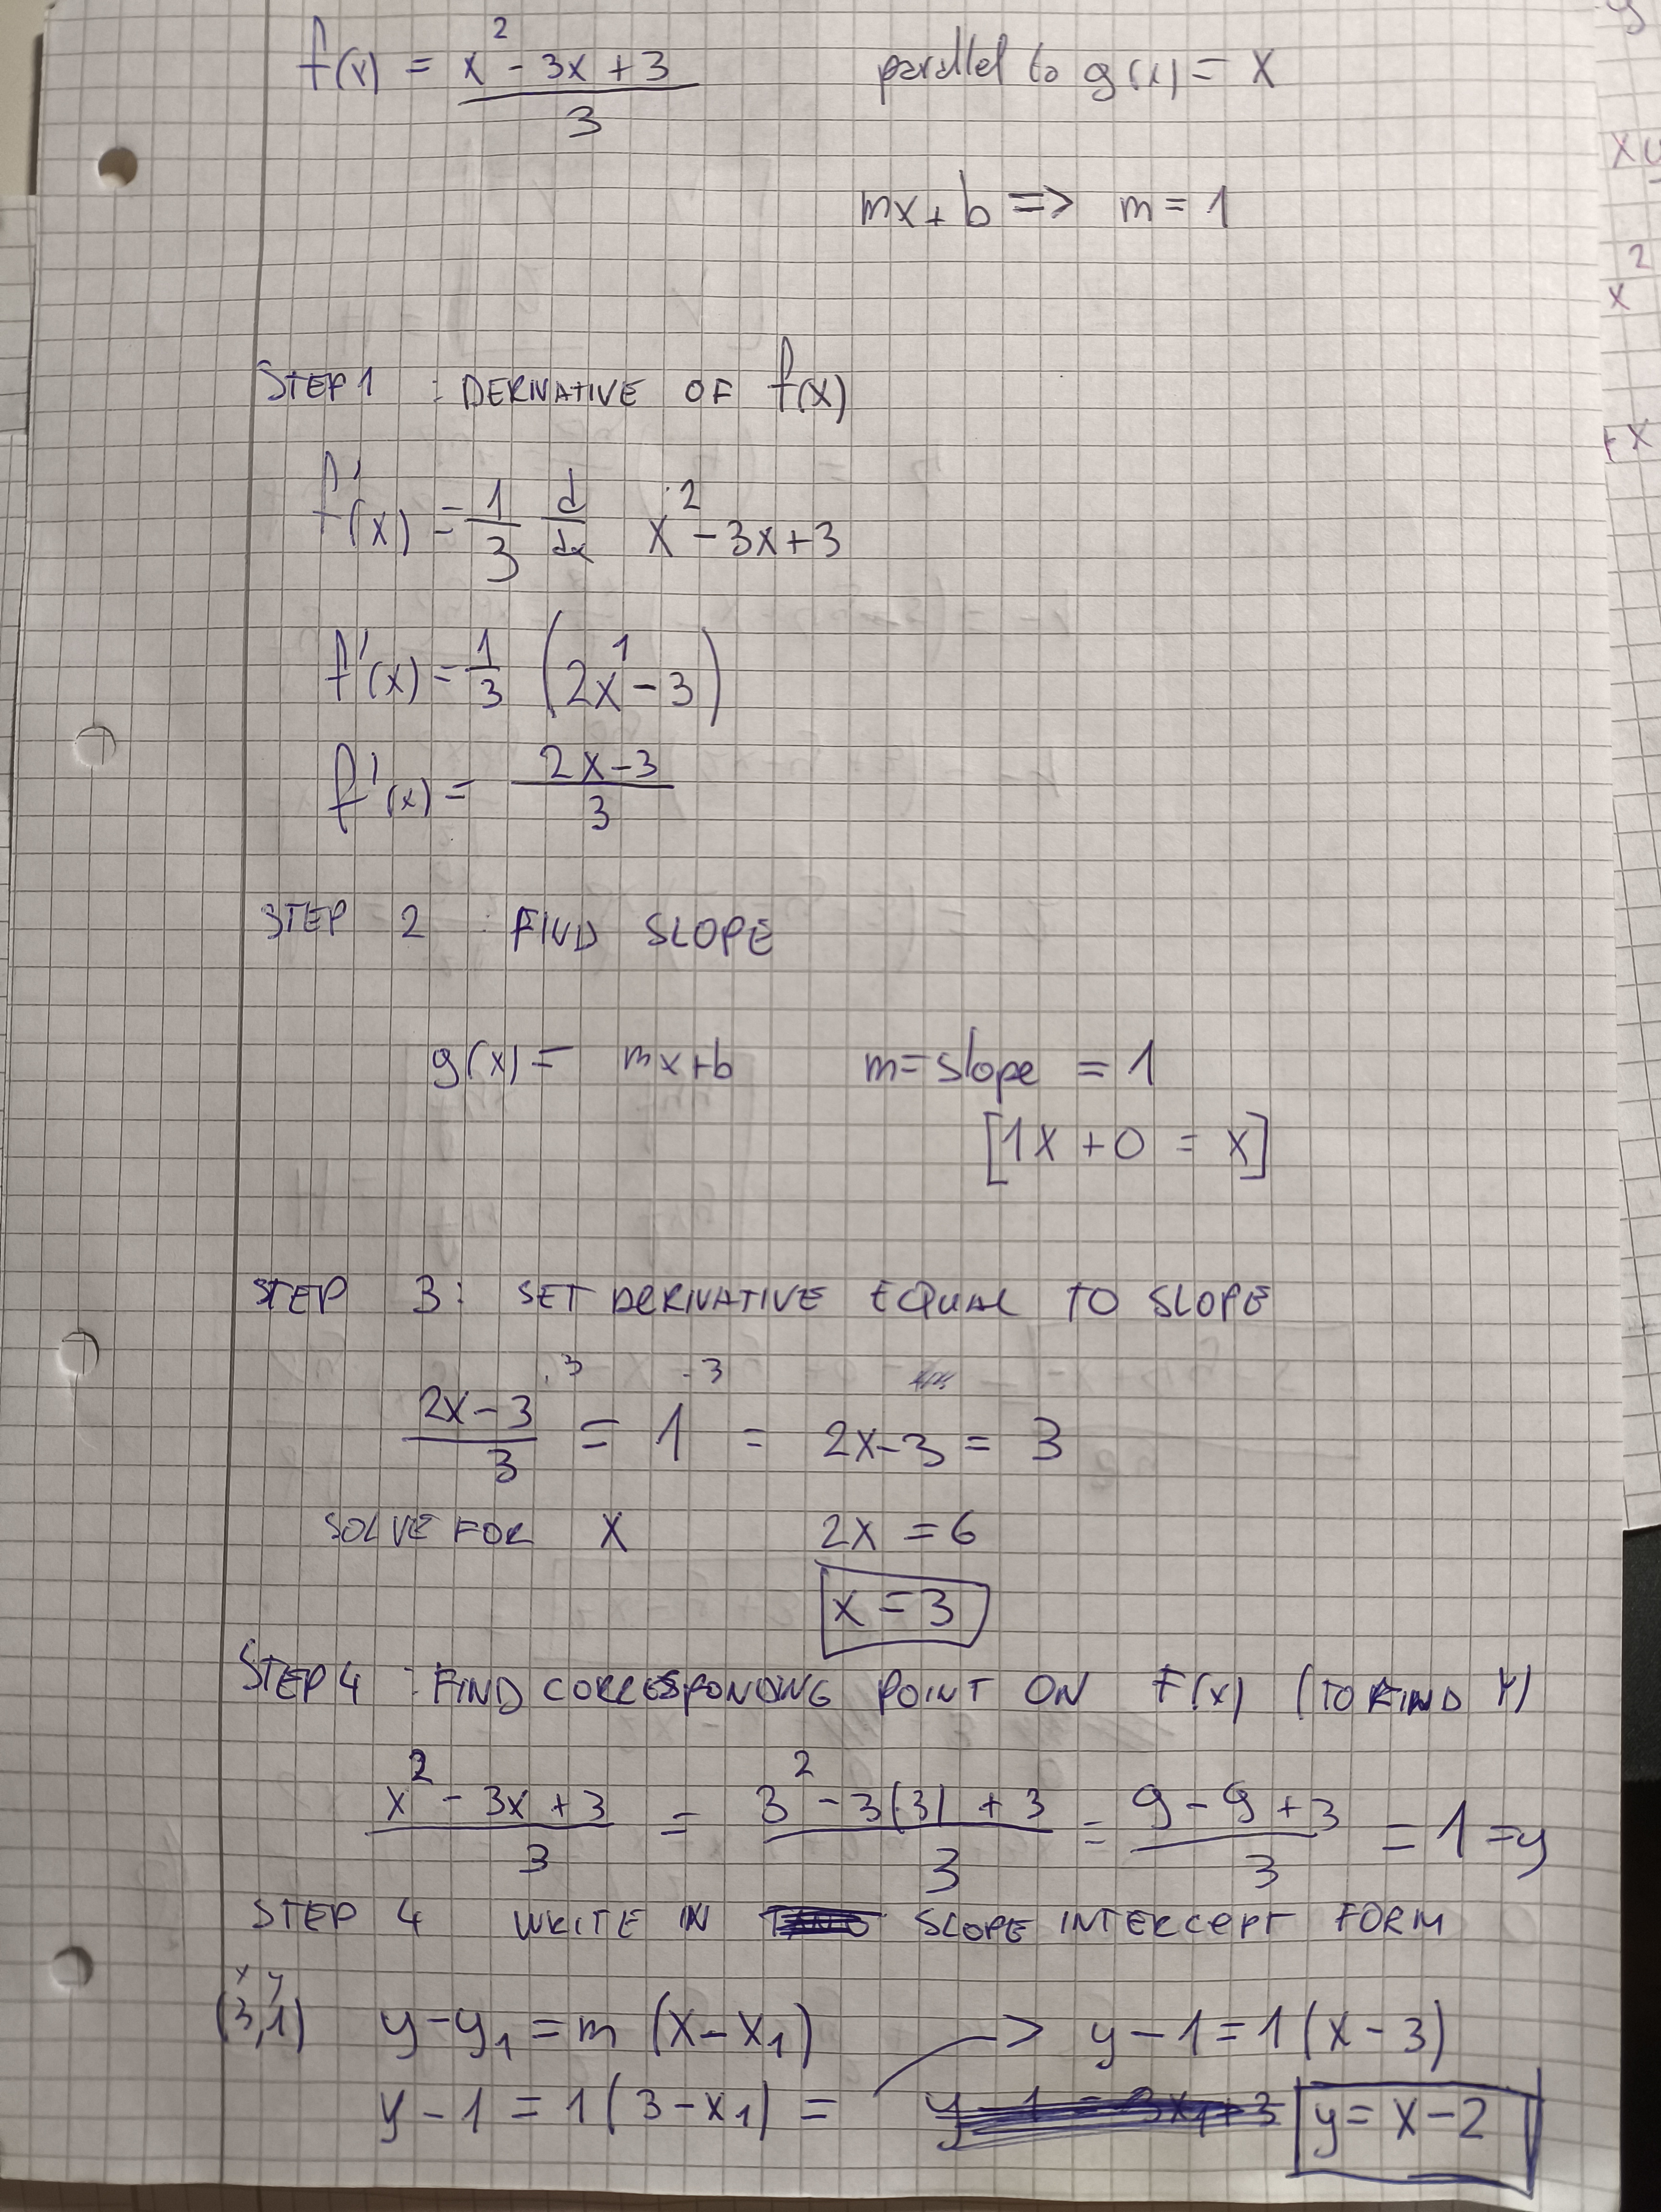 f(x) = x² - 3x + 3 / 3 parallel to g(x) = x
mx + b => m = 1
STEP 1 : DERIVATIVE OF f(x)
f'(x) = 1/3 d/dx x² - 3x + 3
f'(x) = 1/3 (2x¹ - 3)
f'(x) = 2x - 3 / 3
STEP 2 : FIND SLOPE
g(x) = mx + b m = slope = 1
[1x + 0 = x]
STEP 3 : SET DERIVATIVE EQUAL TO SLOPE
2x - 3 / 3 ·3 = 1 ·3 = 2x - 3 = 3
SOLVE FOR X 2x = 6
x = 3
STEP 4 : FIND CORRESPONDING POINT ON F(x) (TO FIND Y)
x² - 3x + 3 / 3 = 3² - 3(3) + 3 / 3 = 9 - 9 + 3 / 3 = 1 = y
STEP 4 WRITE IN SLOPE INTERCEPT FORM
x y
(3,1) y - y₁ = m (x - x₁) -> y - 1 = 1 (x - 3)
y - 1 = 1 (3 - x₁) = y - 1 = 3x₁ + 3 y = x - 2